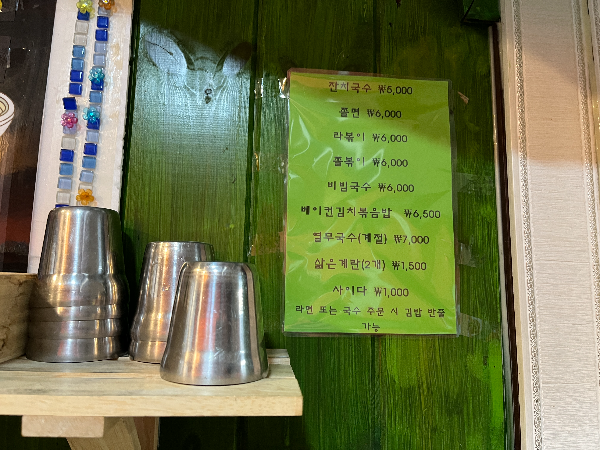 잔치국수 ₩6,000
쫄면 ₩6,000
라볶이 ₩6,000
쫄볶이 ₩6,000
비빔국수 ₩6,000
베이컨김치볶음밥 ₩6,500
열무국수(계절) ₩7,000
삶은계란(2개) ₩1,500
사이다 ₩1,000
라면 또는 국수 주문 시 김밥 반줄
가능